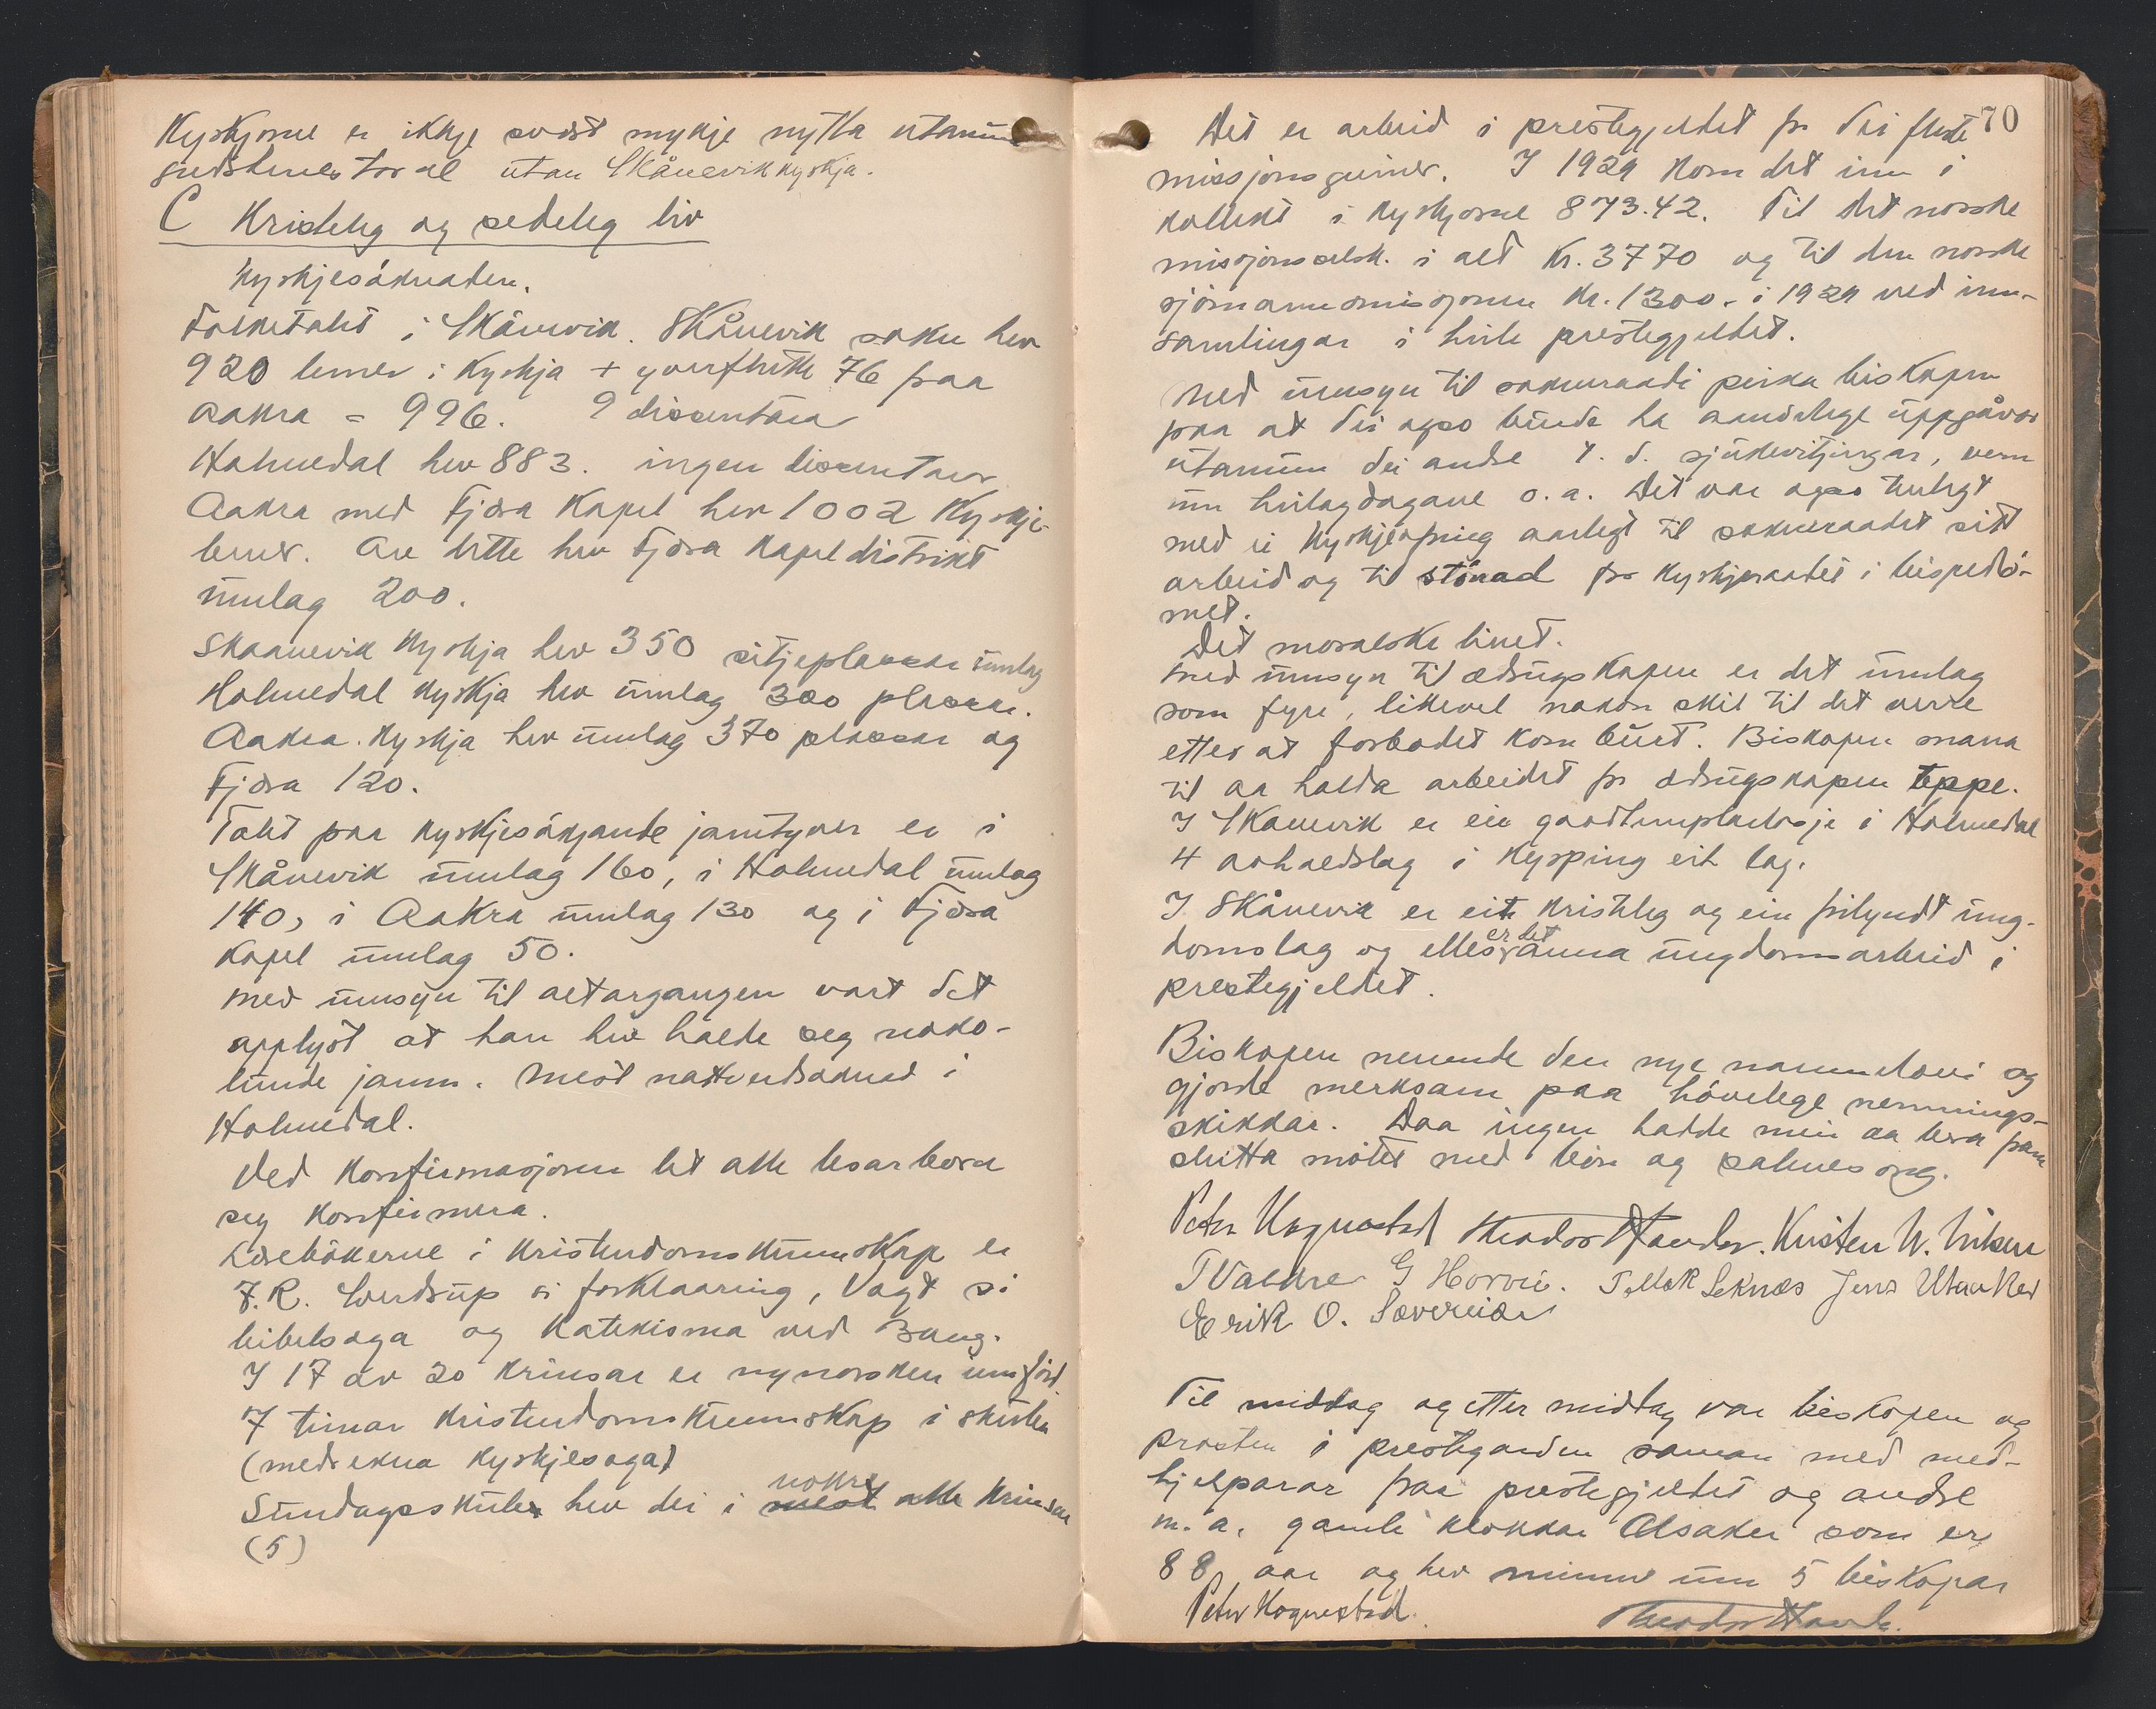 Kyrkjorne er ikkje svært mykje nytta utanum
gudstenestor al utan Skånevik kyrkja.
C Kristeleg og sedeleg liv
Kyrkjesóknaden.
Folketalet i Skånevik. Skånevik sokn hev
920 lemer i kyrkja + yverflutte 76 fraa
Aakra = 996. 9 dissentara
Holmedal hev 883. ingen dissentarar
Aakra med Fjæra Kapel hev 1002 kyrkje-
lemer. Av dette hev Fjæra Kapeldistrikt
umlag 200.
Skaanevik kyrkja hev 350 sitjeplassar umlag
Holmedal kyrkja hev umlag 300 plassar.
Aakra kyrkja hev umlag 370 plassar og
Fjæra 120.
Talet paa kyrkjesókjande jamtyver er i
Skånevik umlag 160, i Holmedal umlag
140, i Aakra umlag 130 og i Fjæra
Kapel umlag 50.
Med umsyn til altargangen vart det
upplyst at han hev halde seg noko-
lunde jamn. Mest nattverdsóknad i
Holmedal.
Ved konfirmasjonen let alle lesarborn
seg konfirmera.
Lærebökerne i kristendomskunnskap er
J. R. Sverdrup si forklaaring, Vogt si
bibelsoga og katekisma ved Bang.
I 17 av 20 krinsar er nynorsken innförd.
7 timar kristendomskunnskap i skulen
(medrekna kyrkjesoga)
nokre
Sundagsskule hev dei i mest alle krinsar
(5)
70
Det er arbeid i prestegjeldet for dei fleste
missjonsgreiner. I 1929 kom det inn i
kollekt i kyrkjorne 873.42. Til det norske
misjonsselsk. i alt Kr. 3770 og til den norske
sjömannsmisjonen Kr. 1300.- i 1929 ved inn-
samlingar i heile prestegjeldet.
Med umsyn til sokneraadi peika biskopen
paa at dei ogso burde ha aandelege uppgåvor
utanum dei andre t. d. sjukevitjingar, vern
um heilagdagane o. a. Det var ogso tenlegt
med ei kyrkjeofring aarlegt til sokneraadet sitt
arbeid og til stönad for kyrkjeraadet i bispedö-
met.
Det moralske livet.
Med umsyn til ædrugskapen er det umlag
som fyre, likevel nokon skil til det verre
etter at forbodet kom burt. Biskopen mana
til aa halda arbeidet for ædrugskapen uppe.
I Skånevik er ein goodtemplarlosje i Holmedal
4 avhaldslag i Kyrping eit lag.
I Skånevik er eit kristeleg og ein frilyndt ung-
er det
domslag og elles anna ungdomsarbeid i
prestegjeldet.
Biskopen nemnde den nye namnelovi og
gjorde merksam paa hövelege nemnings-
skikkar. Daa ingen hadde meir aa bera fram
slutta mötet med bön og salmesong.
Peter Hognestad Theodor Hander. Kristen W. Wiken
T Valdre G Horvei. T. Mok Seknæs Jens Utaaker
Erik O. Sævereide
Til middag og etter middag var biskopen og
prosten i prestegarden saman med med-
hjelparar fraa prestegjeldet og andre
m. a. gamle klokkar Alsaker som er
88 aar og hev minne um 5 biskopar
Peter Hognestad. Theodor Hander.